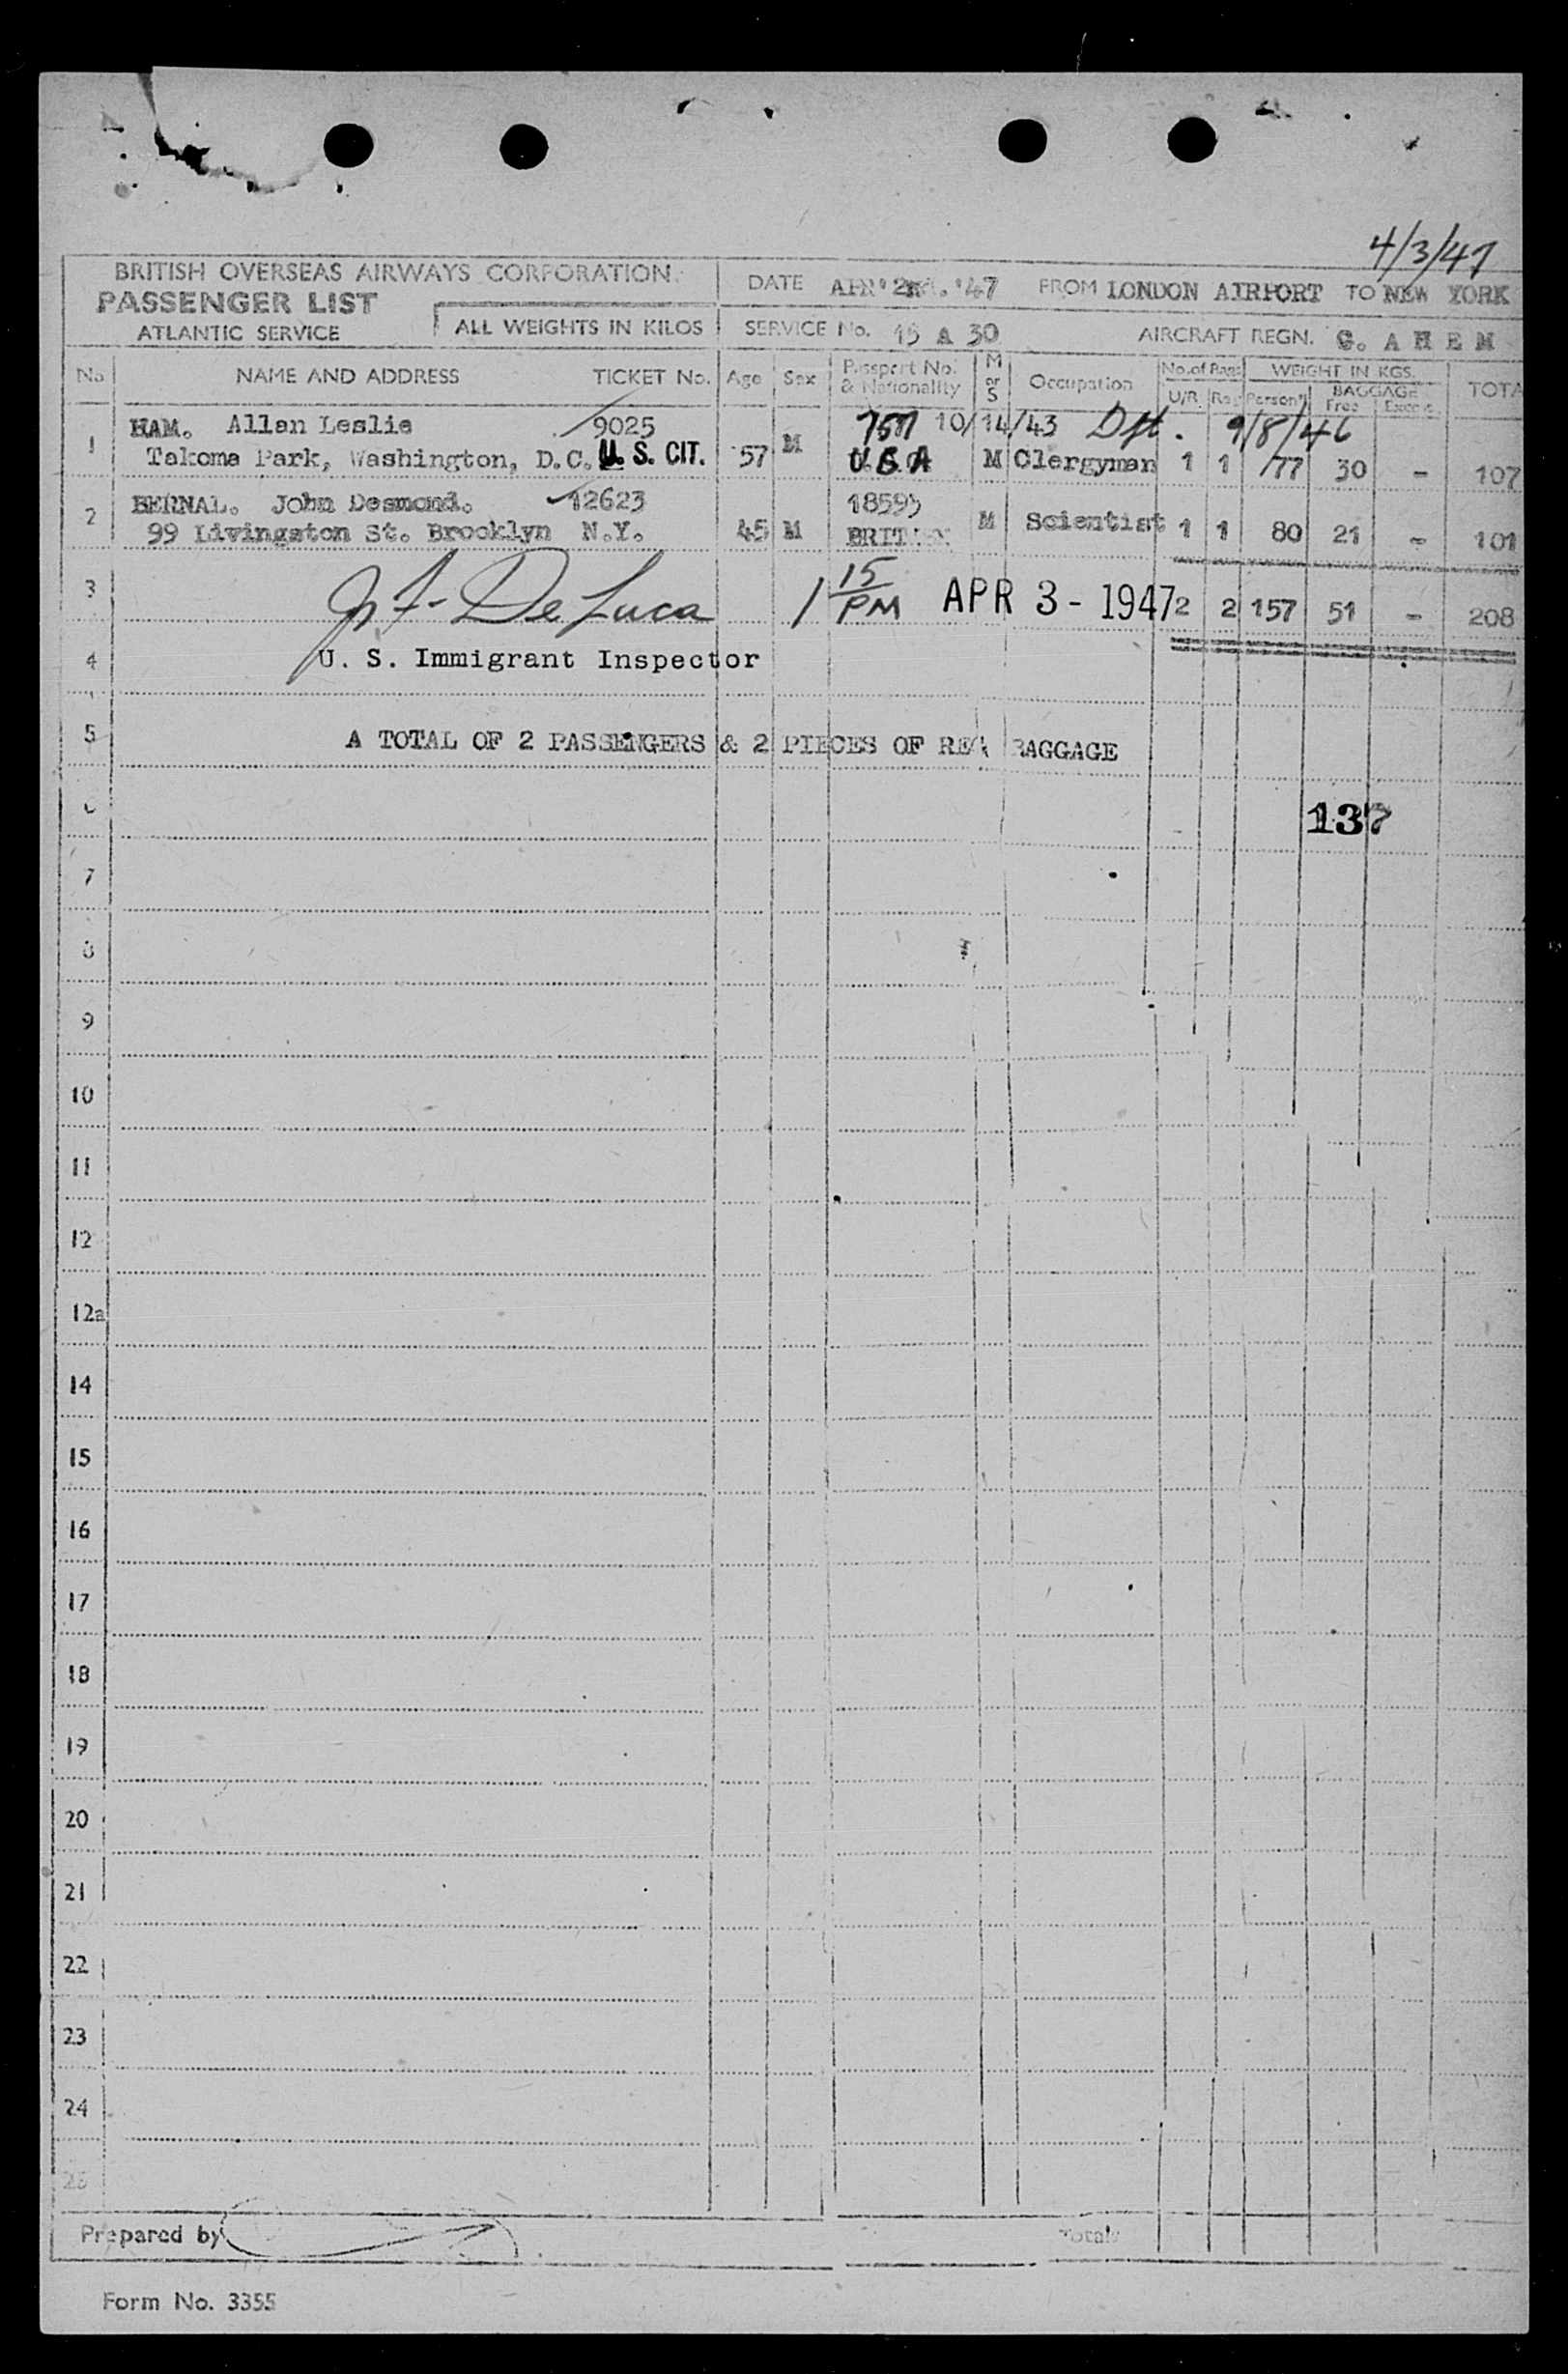 4/3/47
BRITISH OVERSEAS AIRWAYS CORPORATION.
PASSENGER LIST
ATLANTIC SERVICE
ALL WEIGHTS IN KILOS
DATE '47 FROM LONDON AIRPORT TO NEW YORK
SERVICE No. 15 A 30 AIRCRAFT REGN. G. A H E M
No NAME AND ADDRESS TICKET No. Age Sex Passport No. & Nationality M or S Occupation No. of Pags U/R Reg WEIGHT IN KGS. Person'l BAGGAGE Free Excess TOTA
1 HAM. Allen Leslie 9025 10/14/43 Dft. 9/8/46
Takoma Park, Washington, D.C. U. S. CIT. 57 M U.S.A M Clergyman 1 1 77 30 - 107
2 BERNAL. John Desmond. 12623 18595
99 Livingston St. Brooklyn N.Y. 45 M M Scientist 1 1 80 21 - 101
3 De Luca 1 15 PM APR 3 - 1947 2 2 157 51 - 208
4 U. S. Immigrant Inspector
5 A TOTAL OF 2 PASSENGERS & 2 PIECES OF REG BAGGAGE
137
7
8
9
10
11
12
12a
14
15
16
17
18
19
20
21
22
23
24
25
Prepared by Totals
Form No. 3355